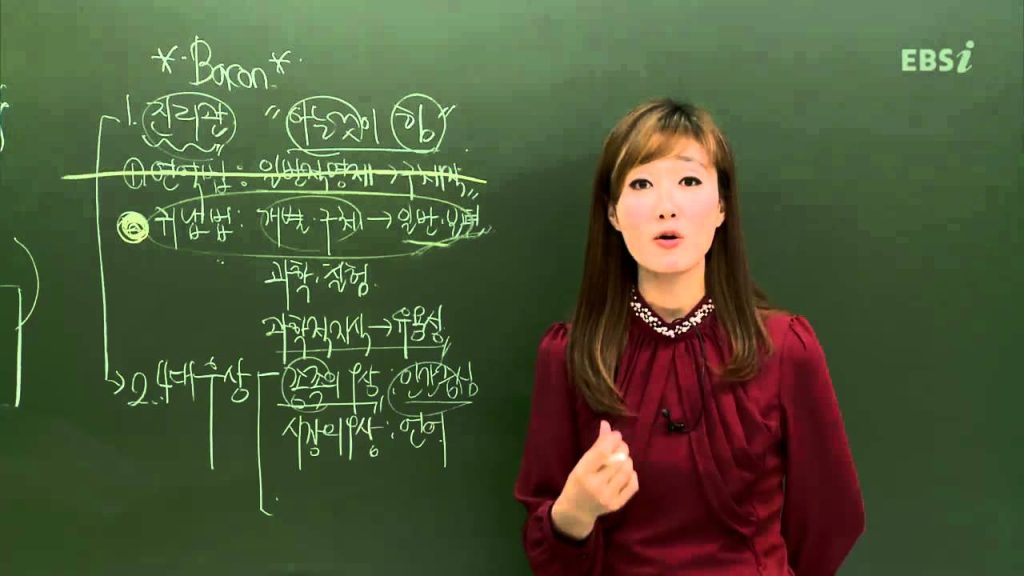 EBSi
*Bacon*
1. 진리관 "아는 것이 힘"
① 연역법 : 일반적 명제 →
② 귀납법 : 개별·구체 → 일반·보편
과학·실험
과학적 지식 → 유용성
2. 4대 우상 종족의 우상 : 인간중심
시장의 우상 : 언어